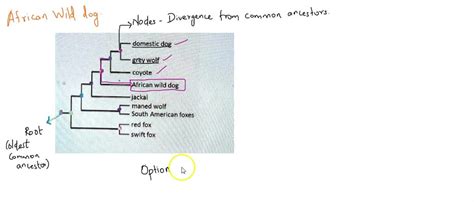 African Wild dog
Nodes - Divergence from common ancestors.
domestic dog
grity wolf
coyote
African wild dog
jackal
maned wolf
South American foxes
red fox
swift fox
Root
(oldest
common
ancestor)
Option